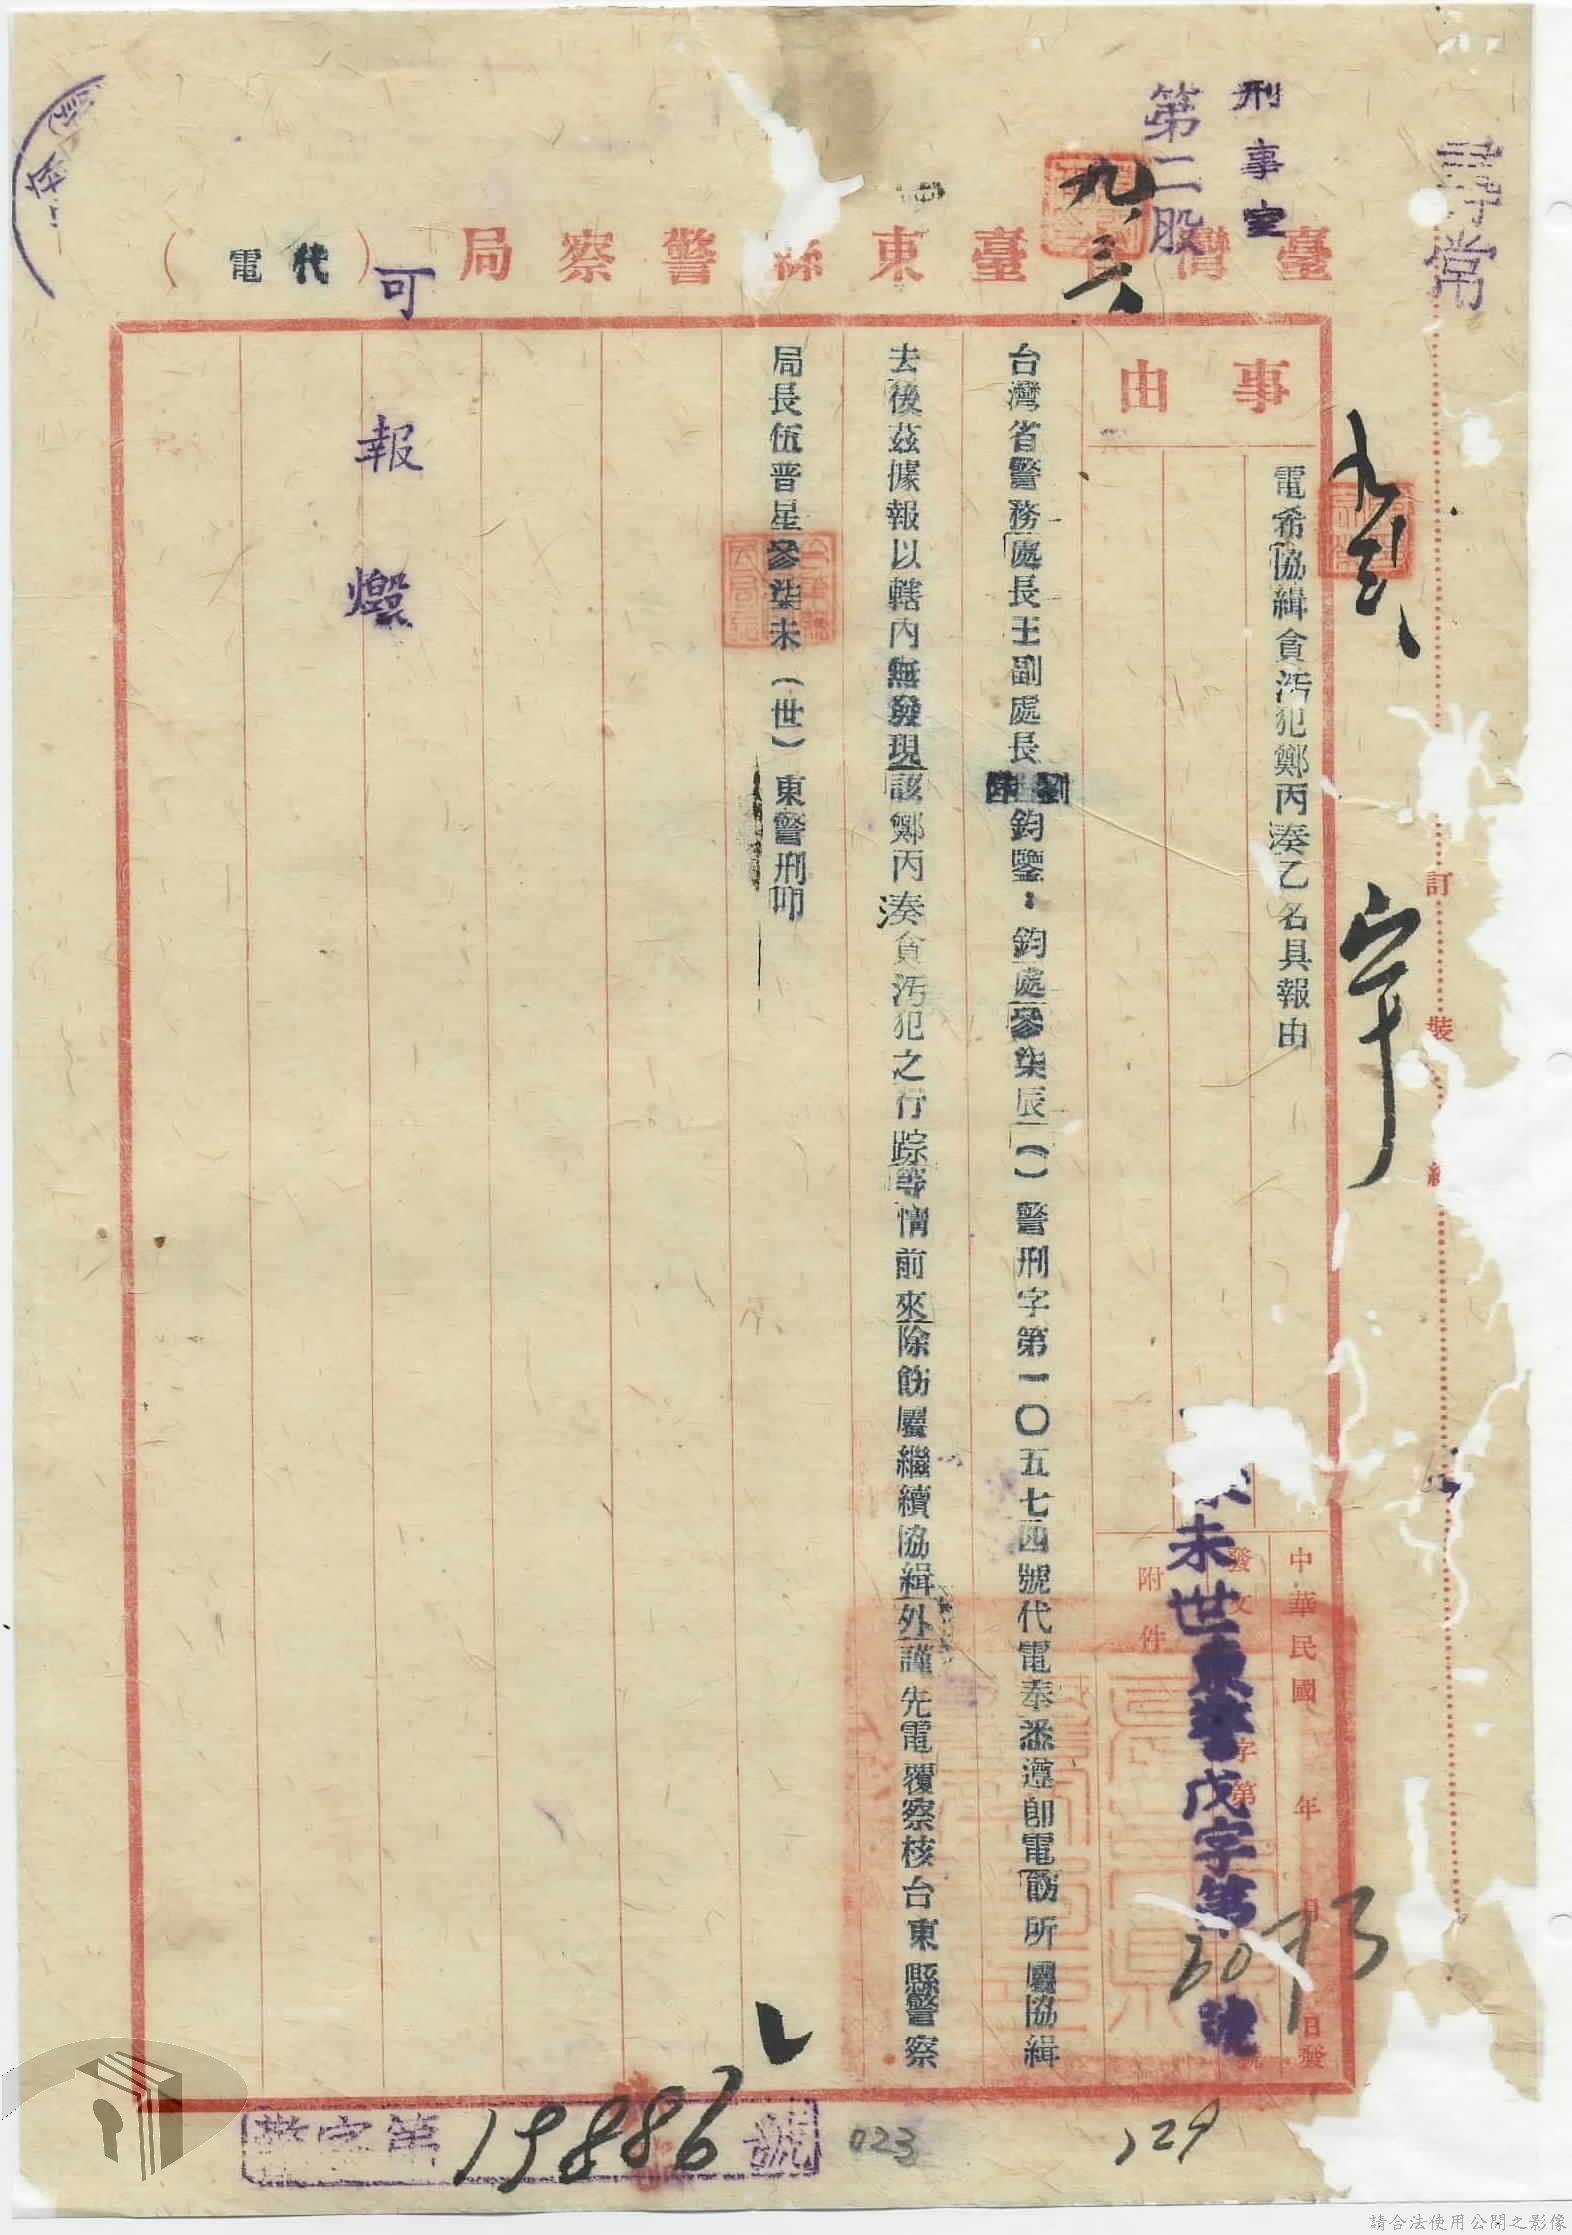 尋常
刑事室
第二股
九、三
臺灣省臺東縣警察局(代電)
事由
電希協緝貪污犯鄭丙湊乙名具報由
中華民國 年 月 日發
發文 字第 號
附件
未世東警戊字第 號
台灣省警務處長王副處長劉鈞鑒:鈞處參柒辰()警刑字第一〇五七四號代電奉悉遵即電飭所屬協緝
去後茲據報以轄內無發現該鄭丙湊貪污犯之行踪等情前來除飭屬繼續協緝外謹先電覆察核台東縣警察
局長伍晋星參柒未(世)東警刑叩
可
報燬
訂
裝
字第 19886 號
023
129
請合法使用公開之影像